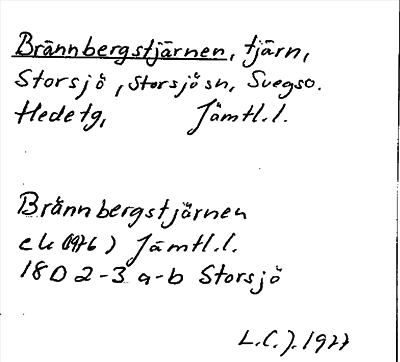 Brännbergstjärnen, tjärn,
Storsjö, Storsjö sn, Svegso.
Hede tg, Jämtl.l.
Brännbergstjärnen
ek (1976) Jämtl.l.
18D 2-3 a-b Storsjö
L.C.J. 1977